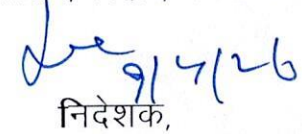 9/7/26
निदेशक,